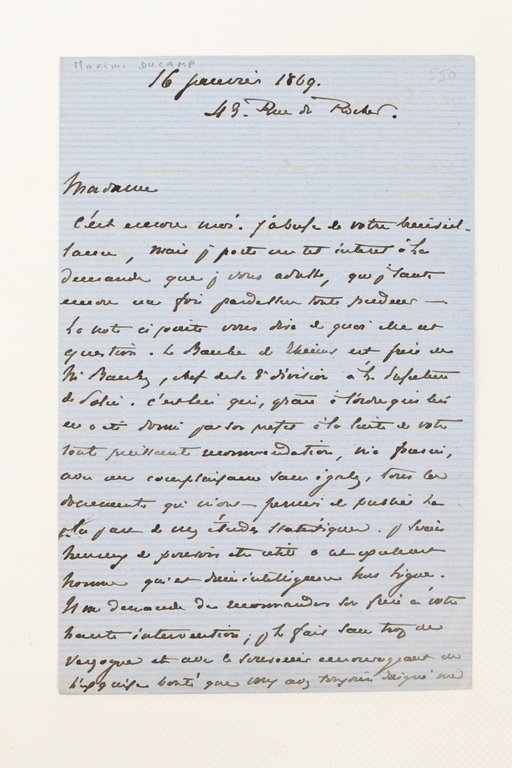 Maxime DUCAMP
550
16 janvier 1869.
49. Rue du Rocher.
Madame
C'est encore moi. J'abuse de votre bienveil-
lance, mais je porte un tel intérêt à la
demande que je vous adresse, que je saute
encore une fois pardessus toute pudeur —
La note ci jointe vous dira de quoi elle est
question. Le Baube de Rheims est frère de
Mr Baube, chef de la 2e division à la Préfecture
de Police. C'est lui qui, grâce à l'ordre qui lui
en a été donné par son préfet à la suite de votre
toute puissante recommandation, m'a fourni,
avec une complaisance sans égale, tous les
documents qui m'ont permis de publier la
plupart de mes études statistiques. Je serais
heureux de pouvoir être utile à cet excellent
homme qui est d'une intelligence hors ligne.
Il me demande de recommander son frère à votre
haute intervention; je le fais sans trop de
vergogne et avec le souvenir encourageant de
l'exquise bonté que vous avez toujours daigné me